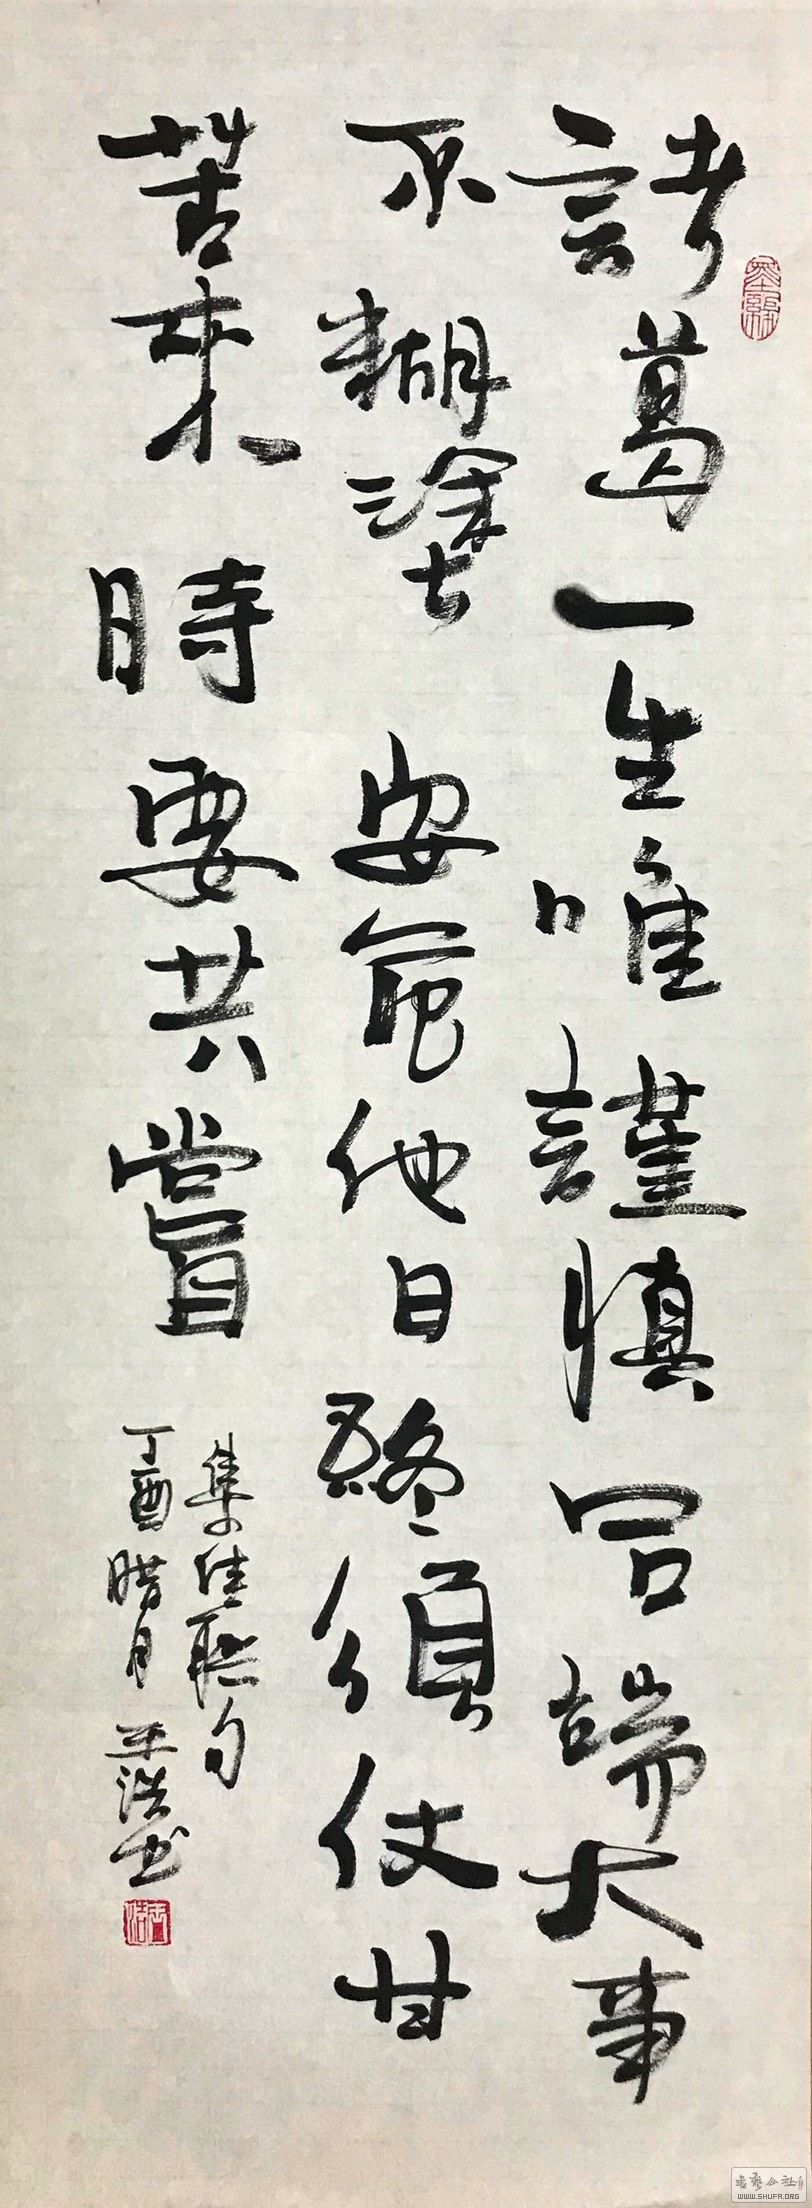 諸葛一生唯謹慎吕端大事
不糊塗安危他日終須仗甘
苦來時要共嘗
集佳聯句
丁酉腊月王浩书
書藝公社
WWW.SHUFA.ORG